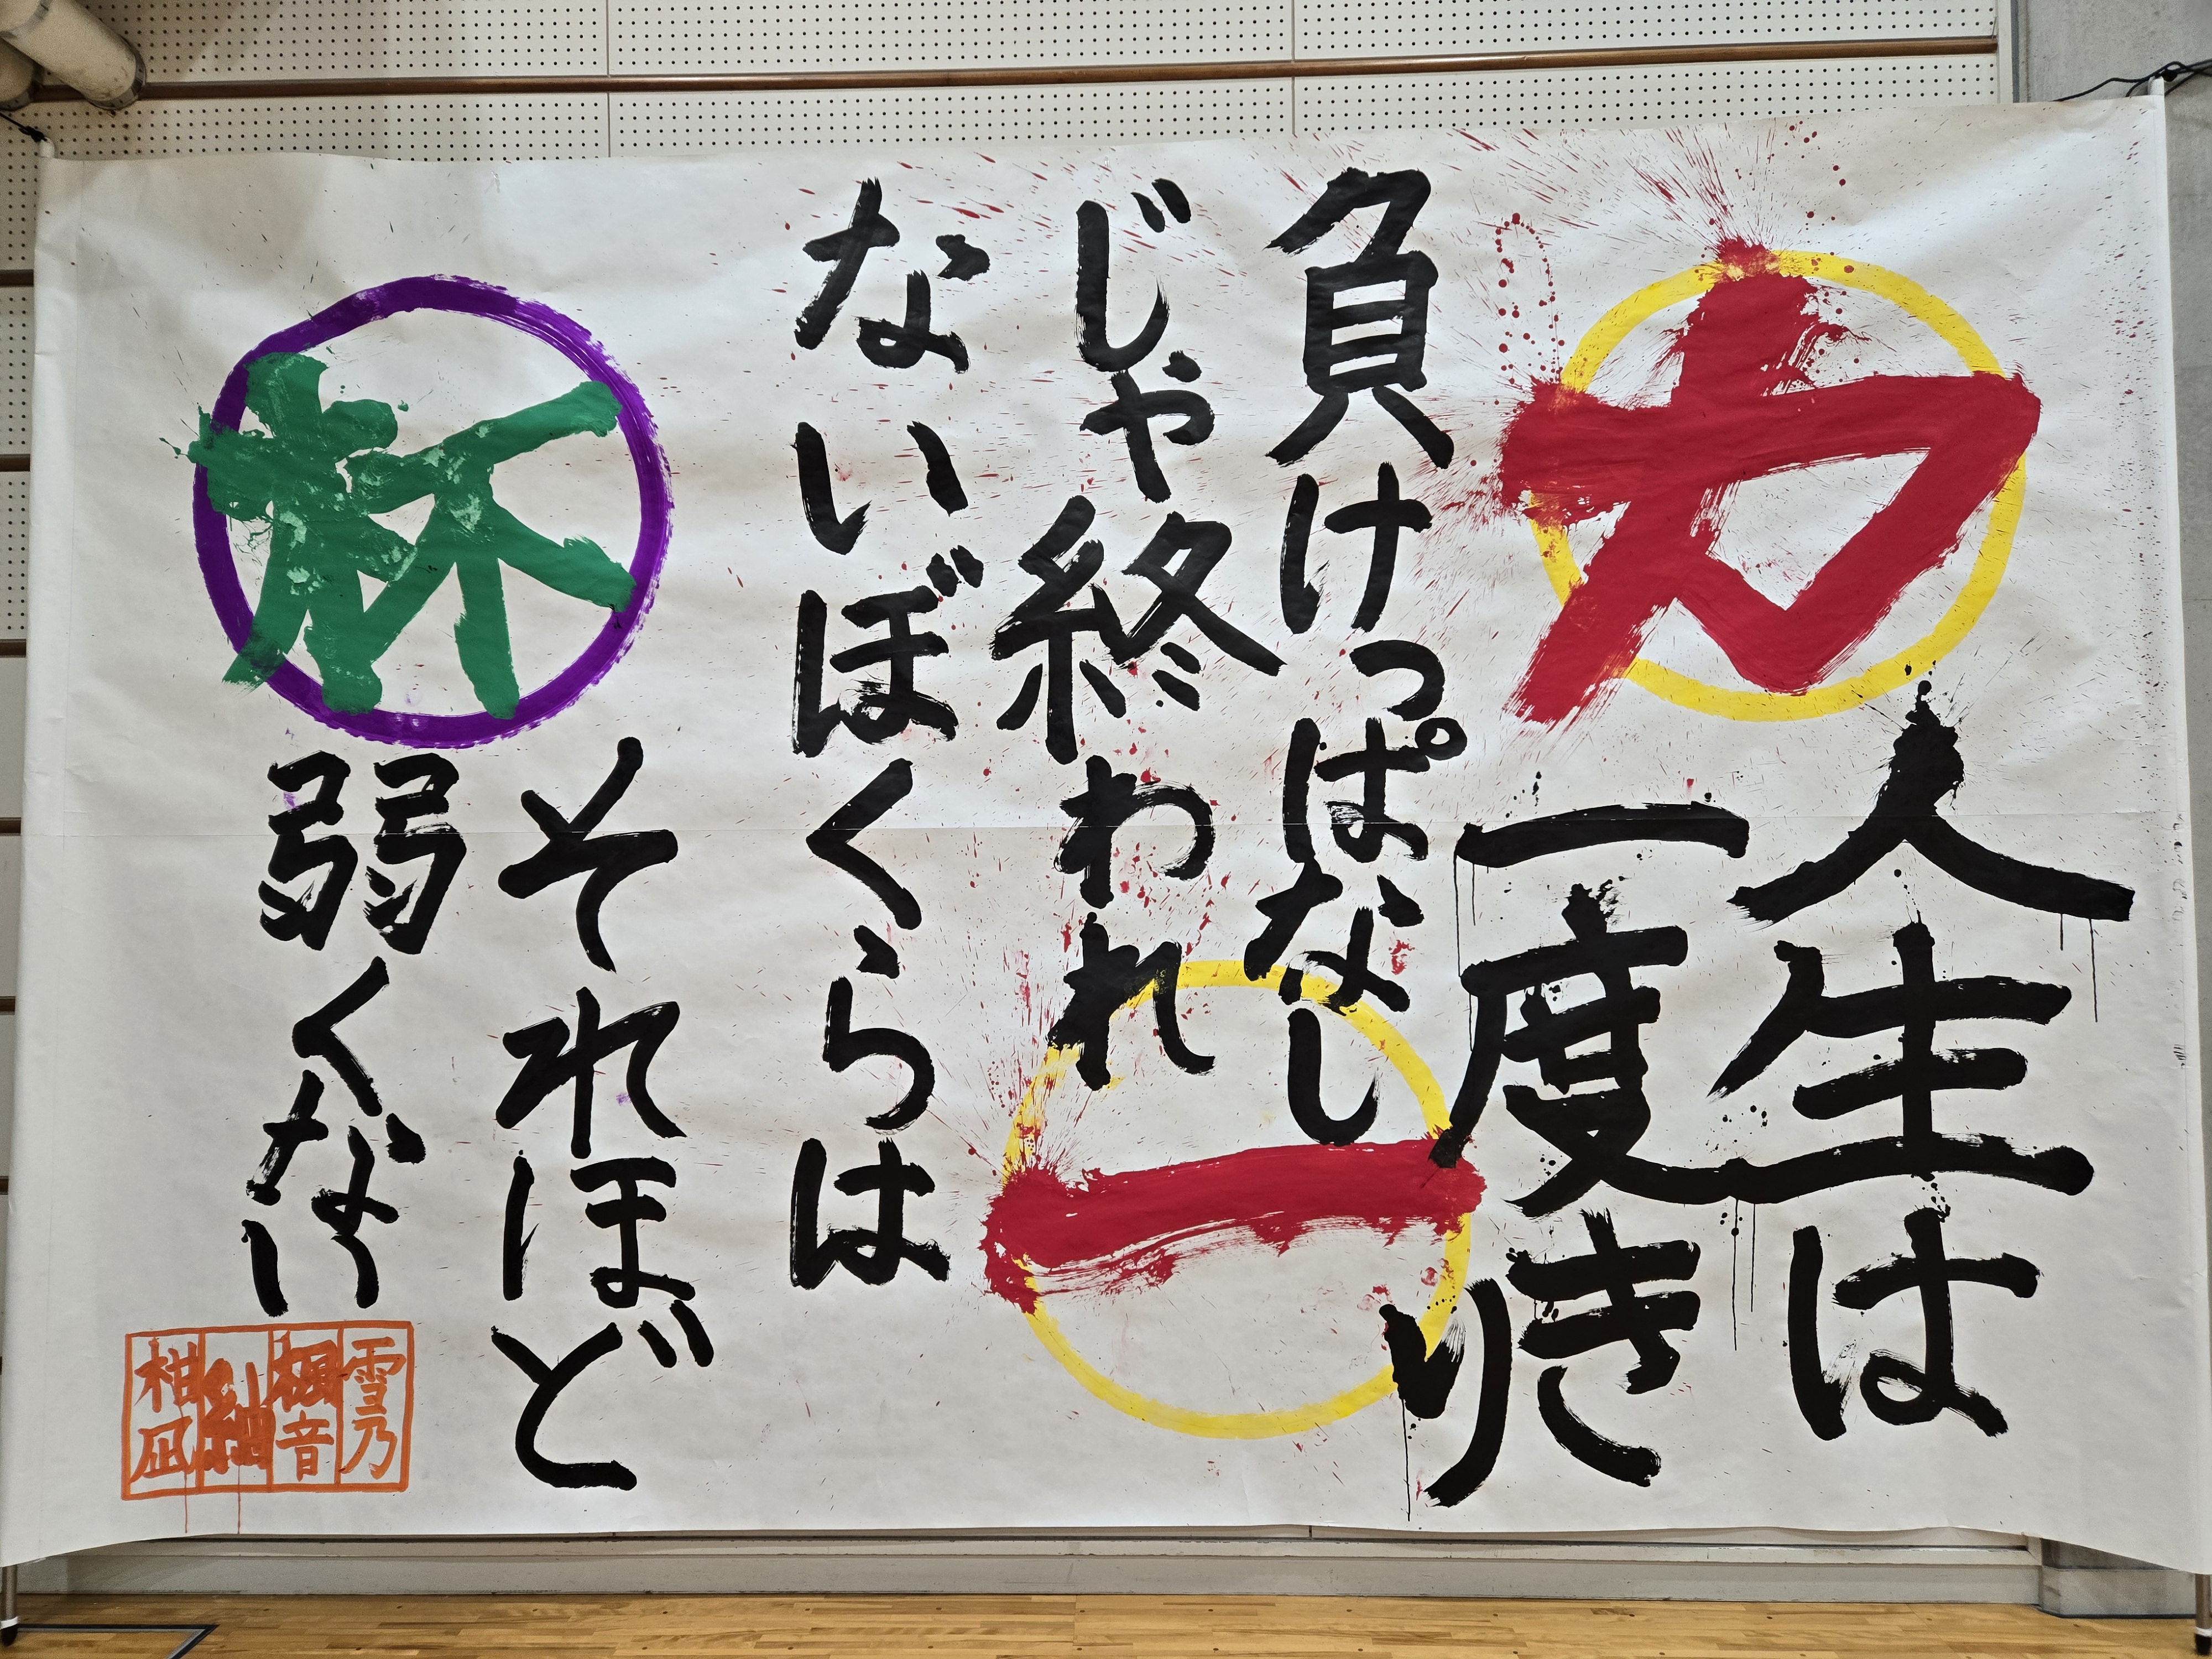 力
人生は
一度きり
負けっぱなし
じゃ終われ
ないぼくらは
一
杯
それほど
弱くない
雪乃
楓音
紬
柑凪